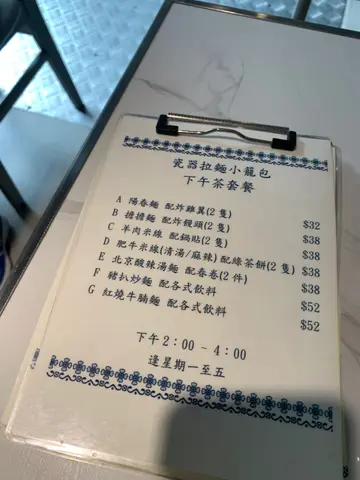 瓷器拉麵小籠包
下午茶套餐
A 陽春麵 配炸雞翼(2隻) $32
B 擔擔麵 配炸饅頭(2隻) $38
C 羊肉米線 配鍋貼(2隻) $38
D 肥牛米線(清湯/麻辣)配綠茶餅(2隻) $38
E 北京酸辣湯麵 配春卷(2件) $38
F 豬扒炒麵 配各式飲料 $52
G 紅燒牛腩麵 配各式飲料 $52
下午2:00 - 4:00
逢星期一至五